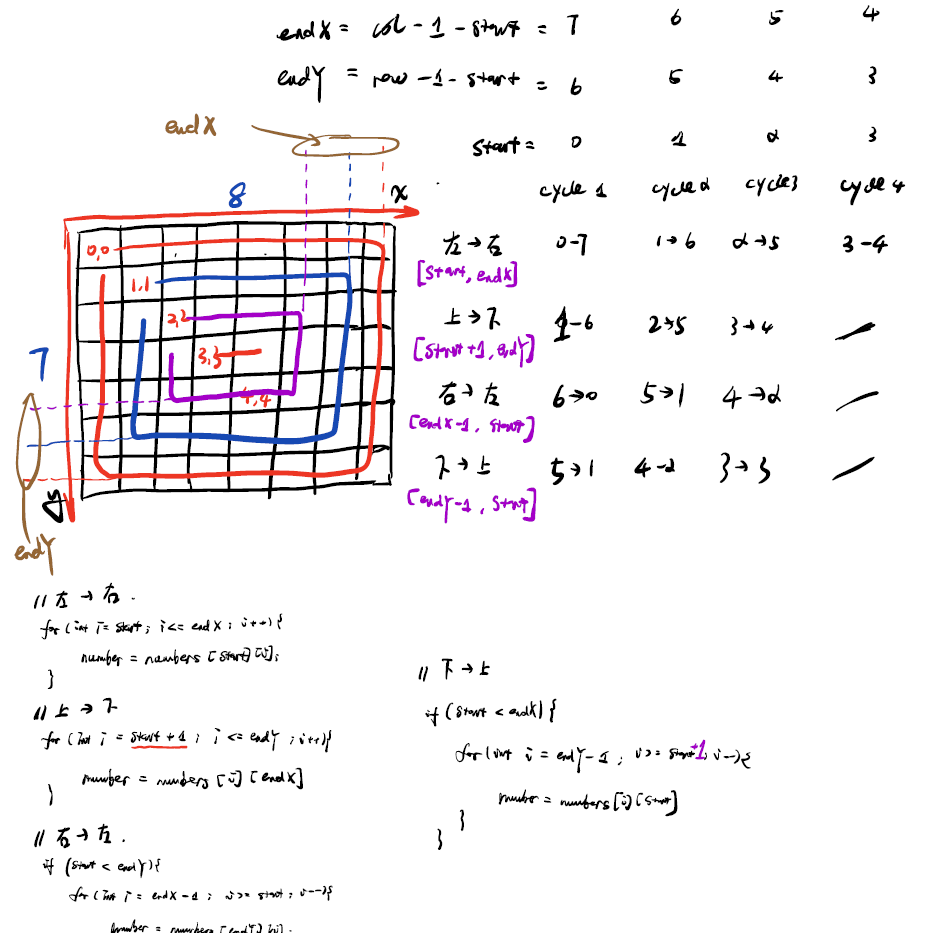 endX = col - 1 - start = 7 6 5 4
endY = row - 1 - start = 6 5 4 3
start = 0 1 2 3
cycle 1 cycle 2 cycle3 cycle 4
endX
8
x
0,0
1,1
2,2
3,3
4,4
7
y
endY
左→右 0-7 1→6 2→5 3-4
[start, endX]
上→下 1-6 2→5 3→4
[start+1, endY]
右→左 6→0 5→1 4→2
[endX-1, start]
下→上 5→1 4-2 3→3
[endY-1, start]
// 左→右.
for (int i = start; i <= endX; i++) {
number = numbers [start] [i];
}
// 上→下
for (int i = start + 1; i <= endY; i++) {
number = numbers [i] [endX]
}
// 右→左.
if (start < endY) {
for (int i = endX - 1; i >= start; i--) {
number = numbers [endY] [i].
// 下→上
if (start < endX) {
for (int i = endY - 1; i >= start+1; i--) {
number = numbers [i] [start]
}
}